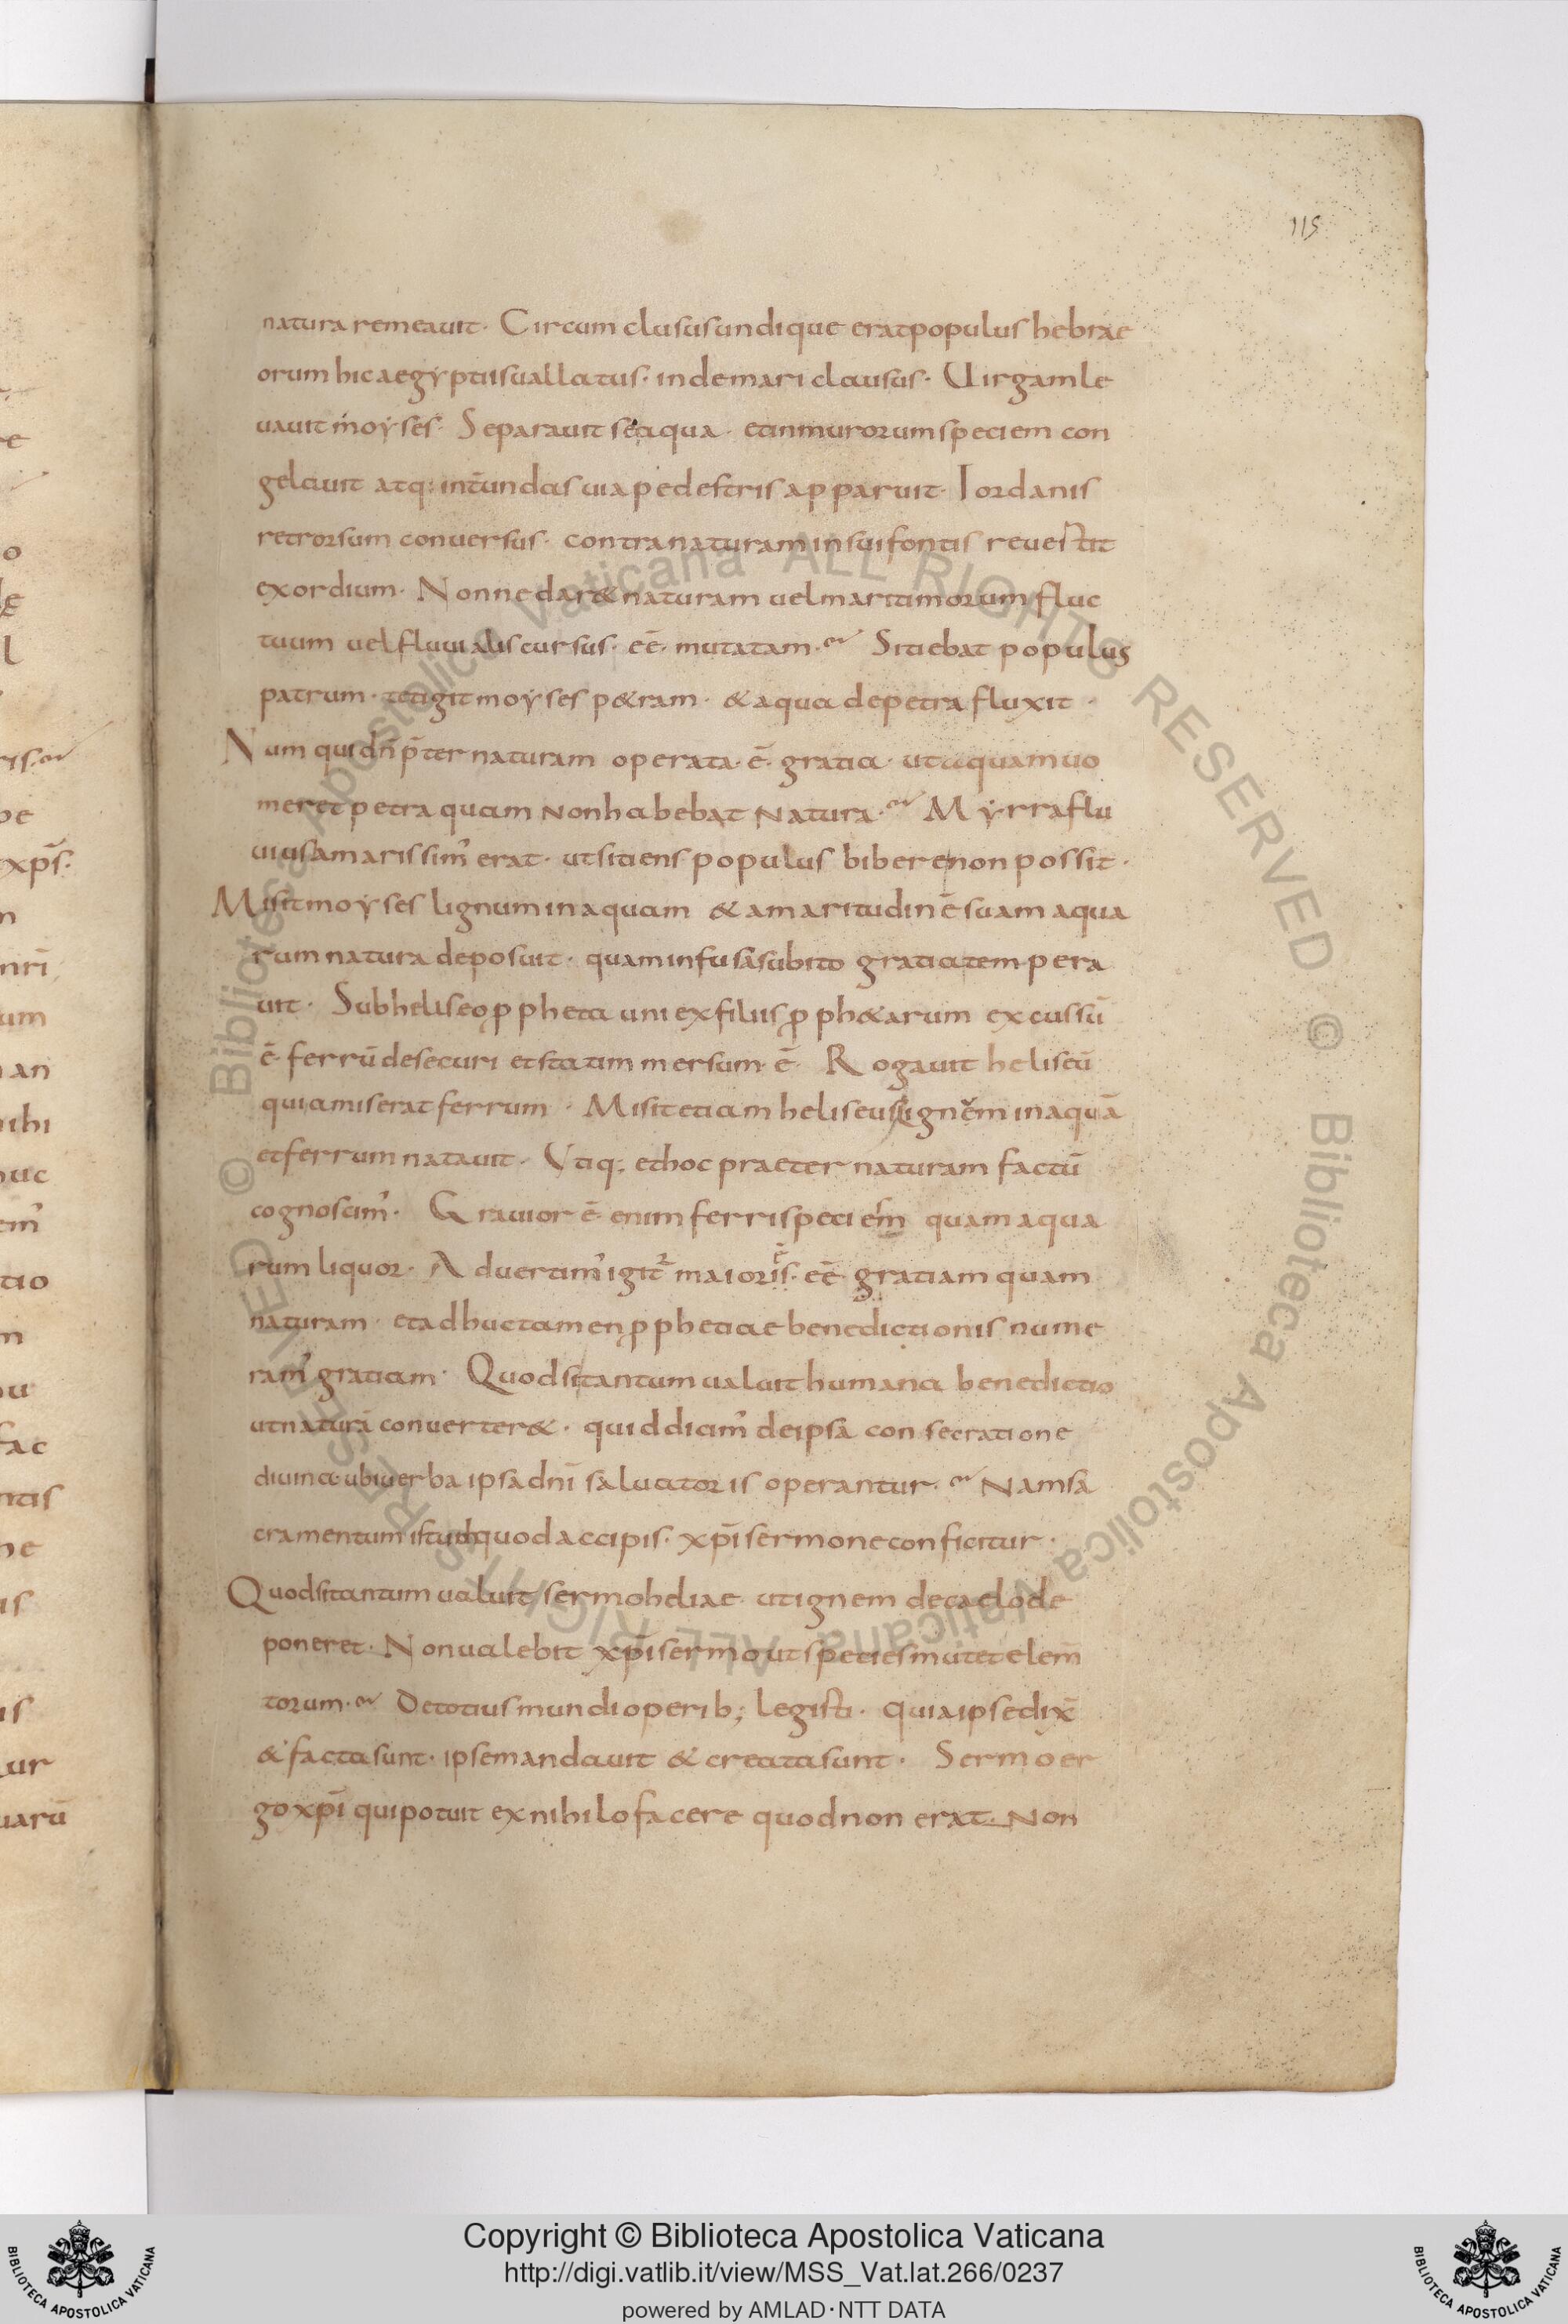 115
natura remeauit· Circum clusus undique erat populus hebrae
orum hic aegyptiis uallatus· inde mari clausus· Uirgam le
uauit moyses· Separauit se aqua· et in murorum speciem con
gelauit atq; int̄ undas uia pedestris apparuit· Iordanis
retrorsum conuersus· contra naturam in sui fontis reuertit
exordium· Nonne claret naturam uel maritimorum fluc
tuum uel fluuialis cursus· eē· mutatam· Sitiebat populus
patrum· tetigit moyses p&ram· & aqua de petra fluxit·
Num quid ñ p̄ter naturam operata· ē· gratia· ut aquam uo
meret petra quam non habebat natura· Myrra flu
uius amarissim' erat· ut sitiens populus bibere non possit·
Misit moyses lignum in aquam & amaritudinē suam aqua
rum natura deposuit· quam infusa subito gratia tempera
uit· Sub heliseo ꝓpheta uni ex filiis ꝓph&arum excussū
ē· ferrū de securi et statim mersum· ē· Rogauit heliseū
qui amiserat ferrum· Misit etiam heliseus lignum in aquā
et ferrum natauit· Vtiq; et hoc praeter naturam factū
cognoscim'· Grauior ē· enim ferri species quam aqua
rum liquor· Aduertim' igit' maioris· eē· gratiam quam
naturam· et adhuc tamen ꝓphetiae benedictionis nume
ram' gratiam· Quod si tantum ualuit humana benedictio
ut naturā conuerter&· quid dicim' de ipsa consecratione
diuina· ubi uerba ipsa dn̄i saluatoris operantur· Nam sa
cramentum istud quod accipis· xp̄i sermone conficitur·
Quod si tantum ualuit sermo heliae· ut ignem de caelo de
poneret· Non ualebit xp̄i sermo ut species mutet elem̄
torum· De totius mundi operib; legisti· quia ipse dix̄
& facta sunt· ipse mandauit & creata sunt· Sermo er
go xp̄i qui potuit ex nihilo facere quod non erat· Non
Copyright © Biblioteca Apostolica Vaticana
http://digi.vatlib.it/view/MSS_Vat.lat.266/0237
powered by AMLAD·NTT DATA